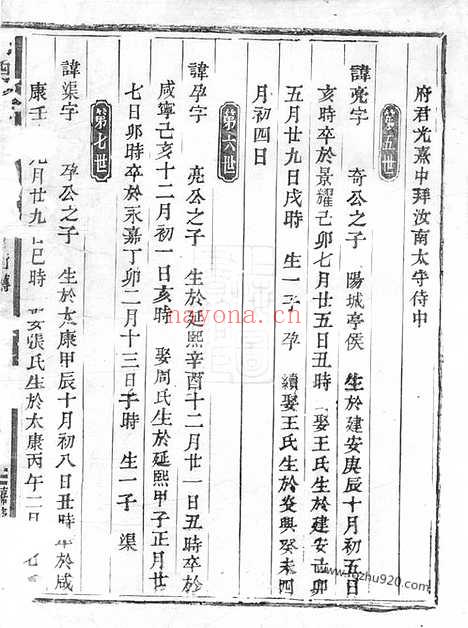 府君光熹中拜汝南太守侍中
第五世
諱亮字 奇公之子 陽城亭侯 生於建安庚辰十月初五日
亥時卒於景耀己卯七月廿五日丑時 娶王氏生於建安己卯
五月廿九日戌時 生一子 孕 續娶王氏生於炎興癸未四
月初四日
第六世
諱孕字 亮公之子 生於延熙辛酉十二月廿一日丑時卒於
咸寧己亥十二月初一日亥時 娶周氏生於延熙甲子正月廿
七日卯時卒於永嘉丁卯二月十三日子時 生一子 渠
第七世
諱渠字 孕公之子 生於太康甲辰十月初八日丑時卒於咸
康壬 九月廿九 巳時 娶張氏生於太康丙午二日
nayona.cn